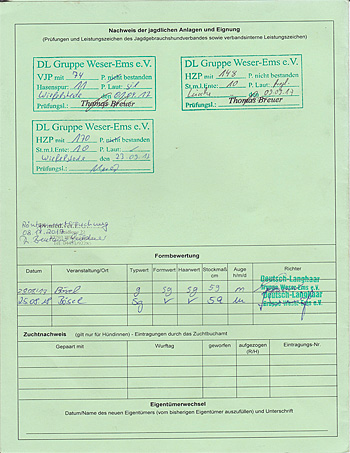 Nachweis der jagdlichen Anlagen und Eignung
(Prüfungen und Leistungszeichen des Jagdgebrauchshundverbandes sowie verbandsinterne Leistungszeichen)
DL Gruppe Weser-Ems e.V.
VJP mit 74 P. nicht bestanden
Hasenspur: 11 P. Laut:
Wiefelstede
Prüfungsl.: Thomas Breuer
DL Gruppe Weser-Ems e.V.
HZP mit 148 P. nicht bestanden
St.m.l.Ente: 10 P. Laut:
Prüfungsl.: Thomas Breuer
DL Gruppe Weser-Ems e.V.
HZP mit 170 P. nicht bestanden
St.m.l.Ente: 10 P. Laut:
Wiefelstede den 23.09.17
Prüfungsl.:
Formbewertung
Datum Veranstaltung/Ort Typwert Formwert Haarwert Stockmaß cm Auge h/m/d Richter
Bösel g sg sg 59 m Deutsch-Langhaar
Gruppe Weser-Ems e.V.
25.08.18 Bösel sg v v 59 m Deutsch-Langhaar
Gruppe Weser-Ems e.V.
Zuchtnachweis (gilt nur für Hündinnen) - Eintragungen durch das Zuchtbuchamt
Gepaart mit Wurftag geworfen aufgezogen (R/H) Eintragungs-Nr.
Eigentümerwechsel
Datum/Name des neuen Eigentümers (vom bisherigen Eigentümer auszufüllen) und Unterschrift